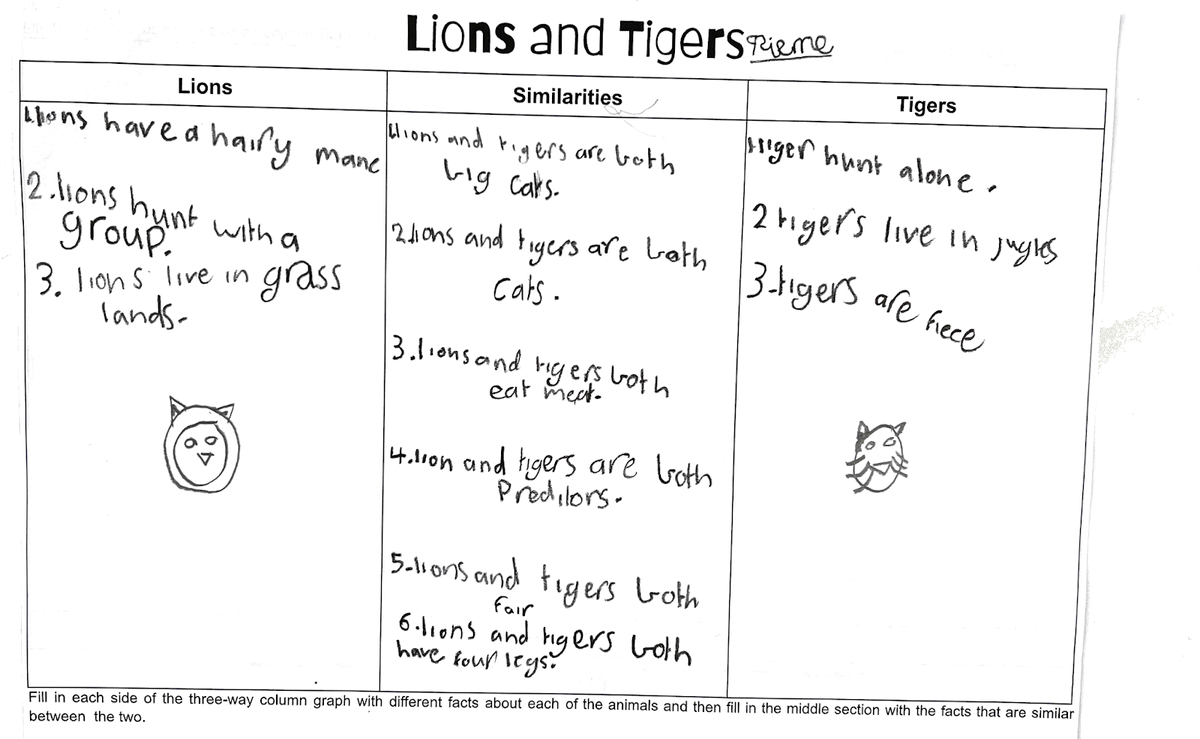 Lions and Tigers
Lions
Similarities
Tigers
1.lions have a hairy mane
2.lions hunt with a
group.
3. lions live in grass
lands.
1.lions and tigers are both
big cats.
2.lions and tigers are both
cats.
3.lions and tigers both
eat meat.
4.lion and tigers are both
Preditors.
5.lions and tigers both
fair
6.lions and tigers both
have four legs.
1.tiger hunt alone.
2 tigers live in jugles
3.tigers are fiece
Fill in each side of the three-way column graph with different facts about each of the animals and then fill in the middle section with the facts that are similar
between the two.